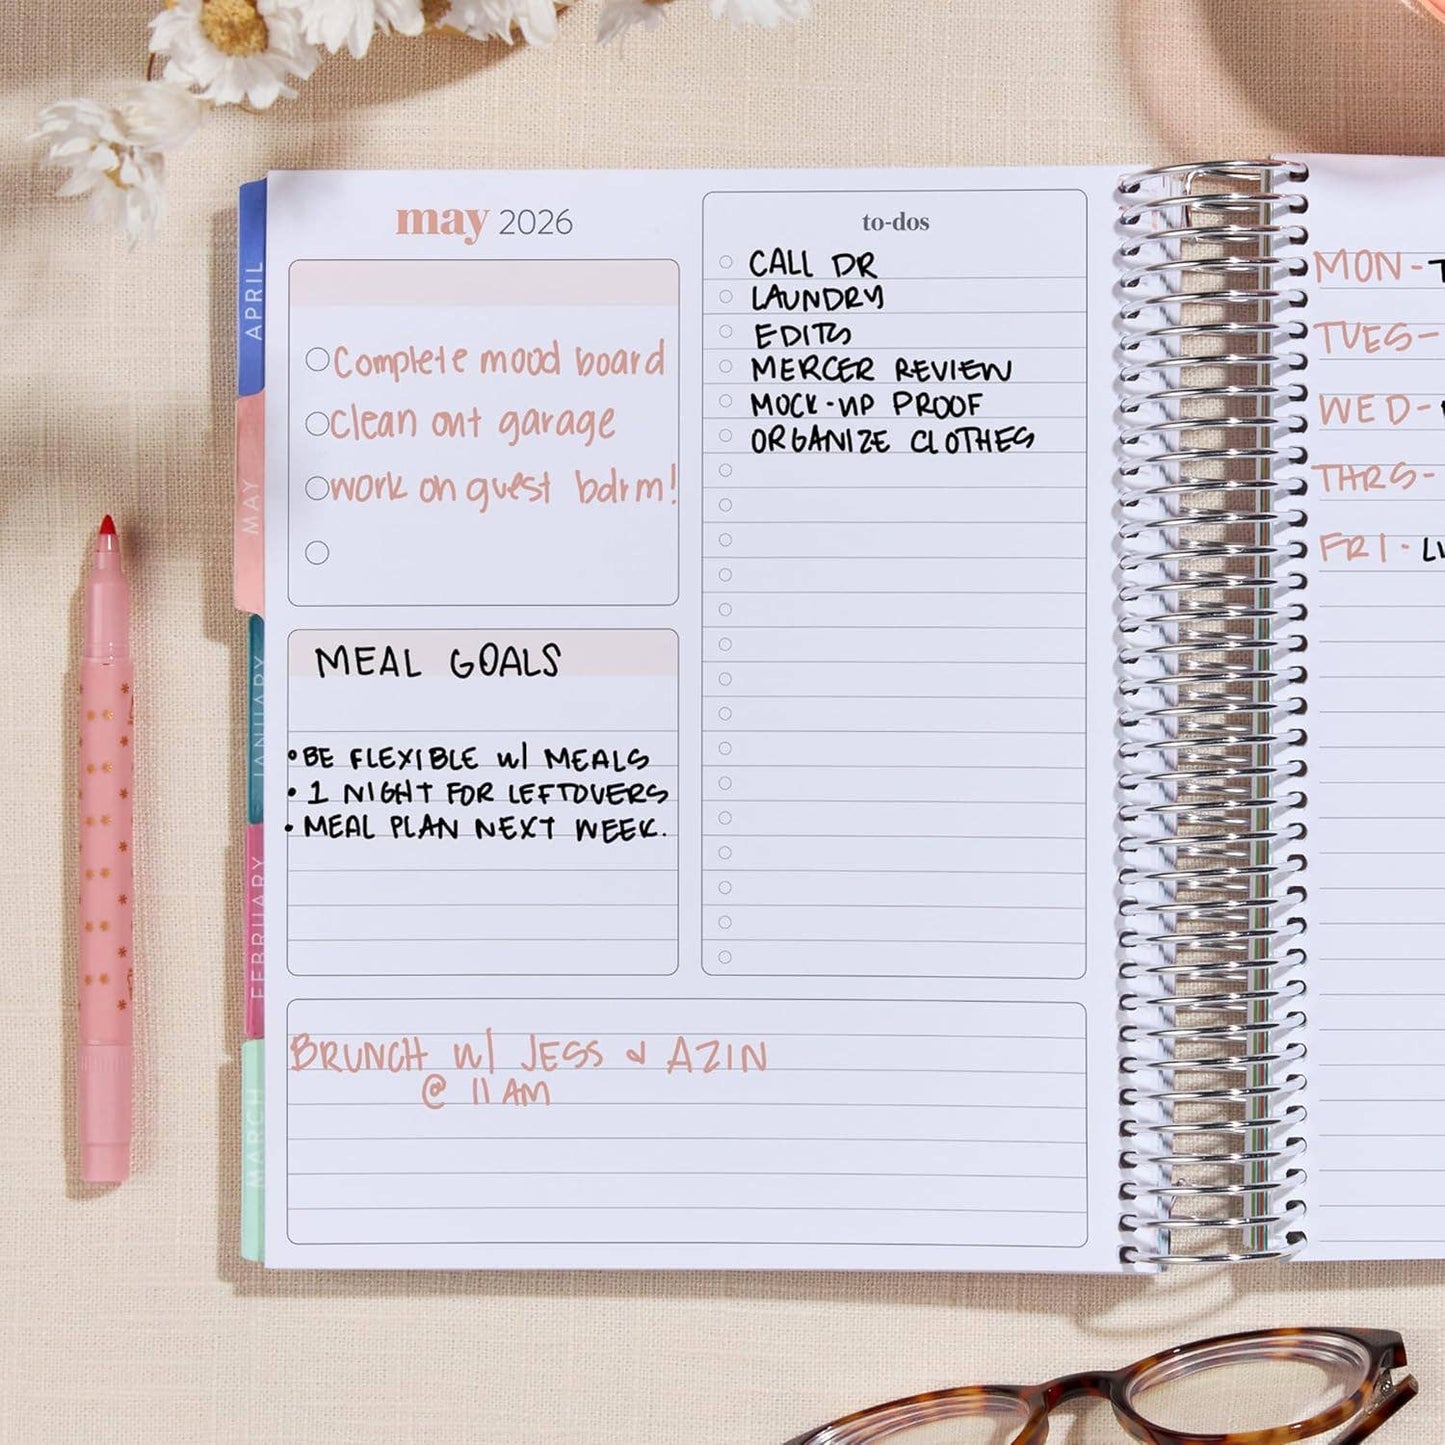 may 2026
Complete mood board
clean out garage
work on guest bdrm!
MEAL GOALS
• BE FLEXIBLE w/ MEALS
• 1 NIGHT FOR LEFTOVERS
• MEAL PLAN NEXT WEEK.
to-dos
CALL DR
LAUNDRY
EDITS
MERCER REVIEW
MOCK-UP PROOF
ORGANIZE CLOTHES
BRUNCH w/ JESS & AZIN
@ 11 AM
APRIL
MAY
JANUARY
FEBRUARY
MARCH
MON -
TUES -
WED -
THRS -
FRI -